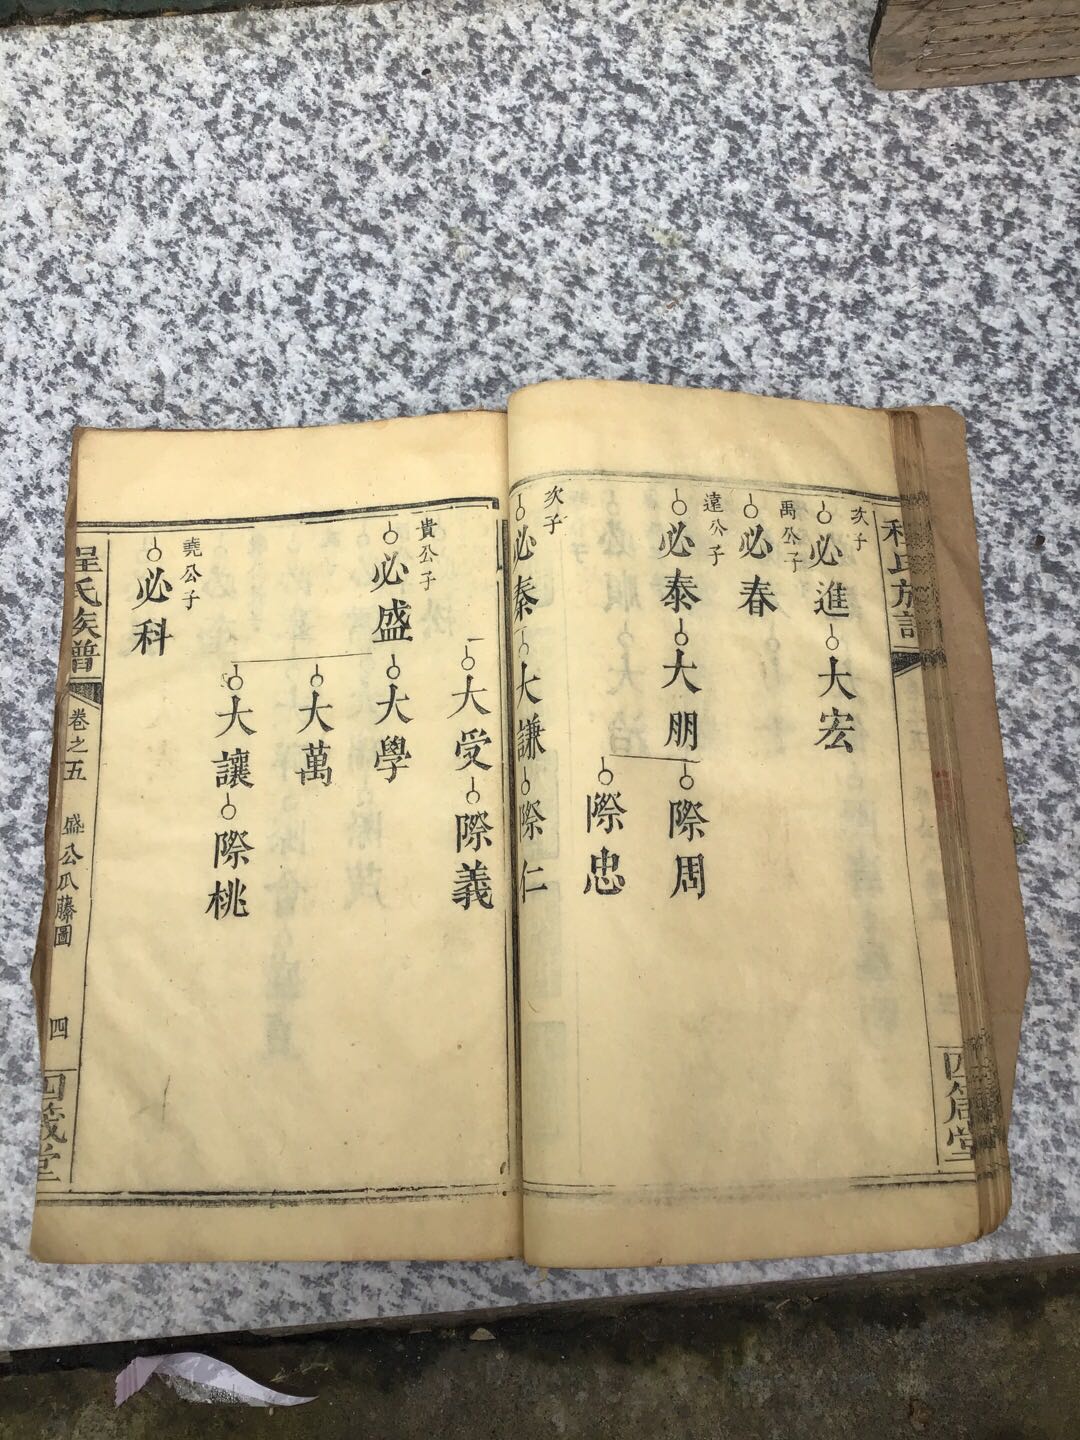 程氏族譜
四箴堂
次子
必進
大宏
禹公子
必春
遠公子
必泰
大朋
際周
際忠
次子
必秦
大謙
際仁
大受
際義
貴公子
必盛
大學
大萬
大讓
際桃
堯公子
必科
程氏族譜
卷之五
盛公瓜藤圖
四
四箴堂